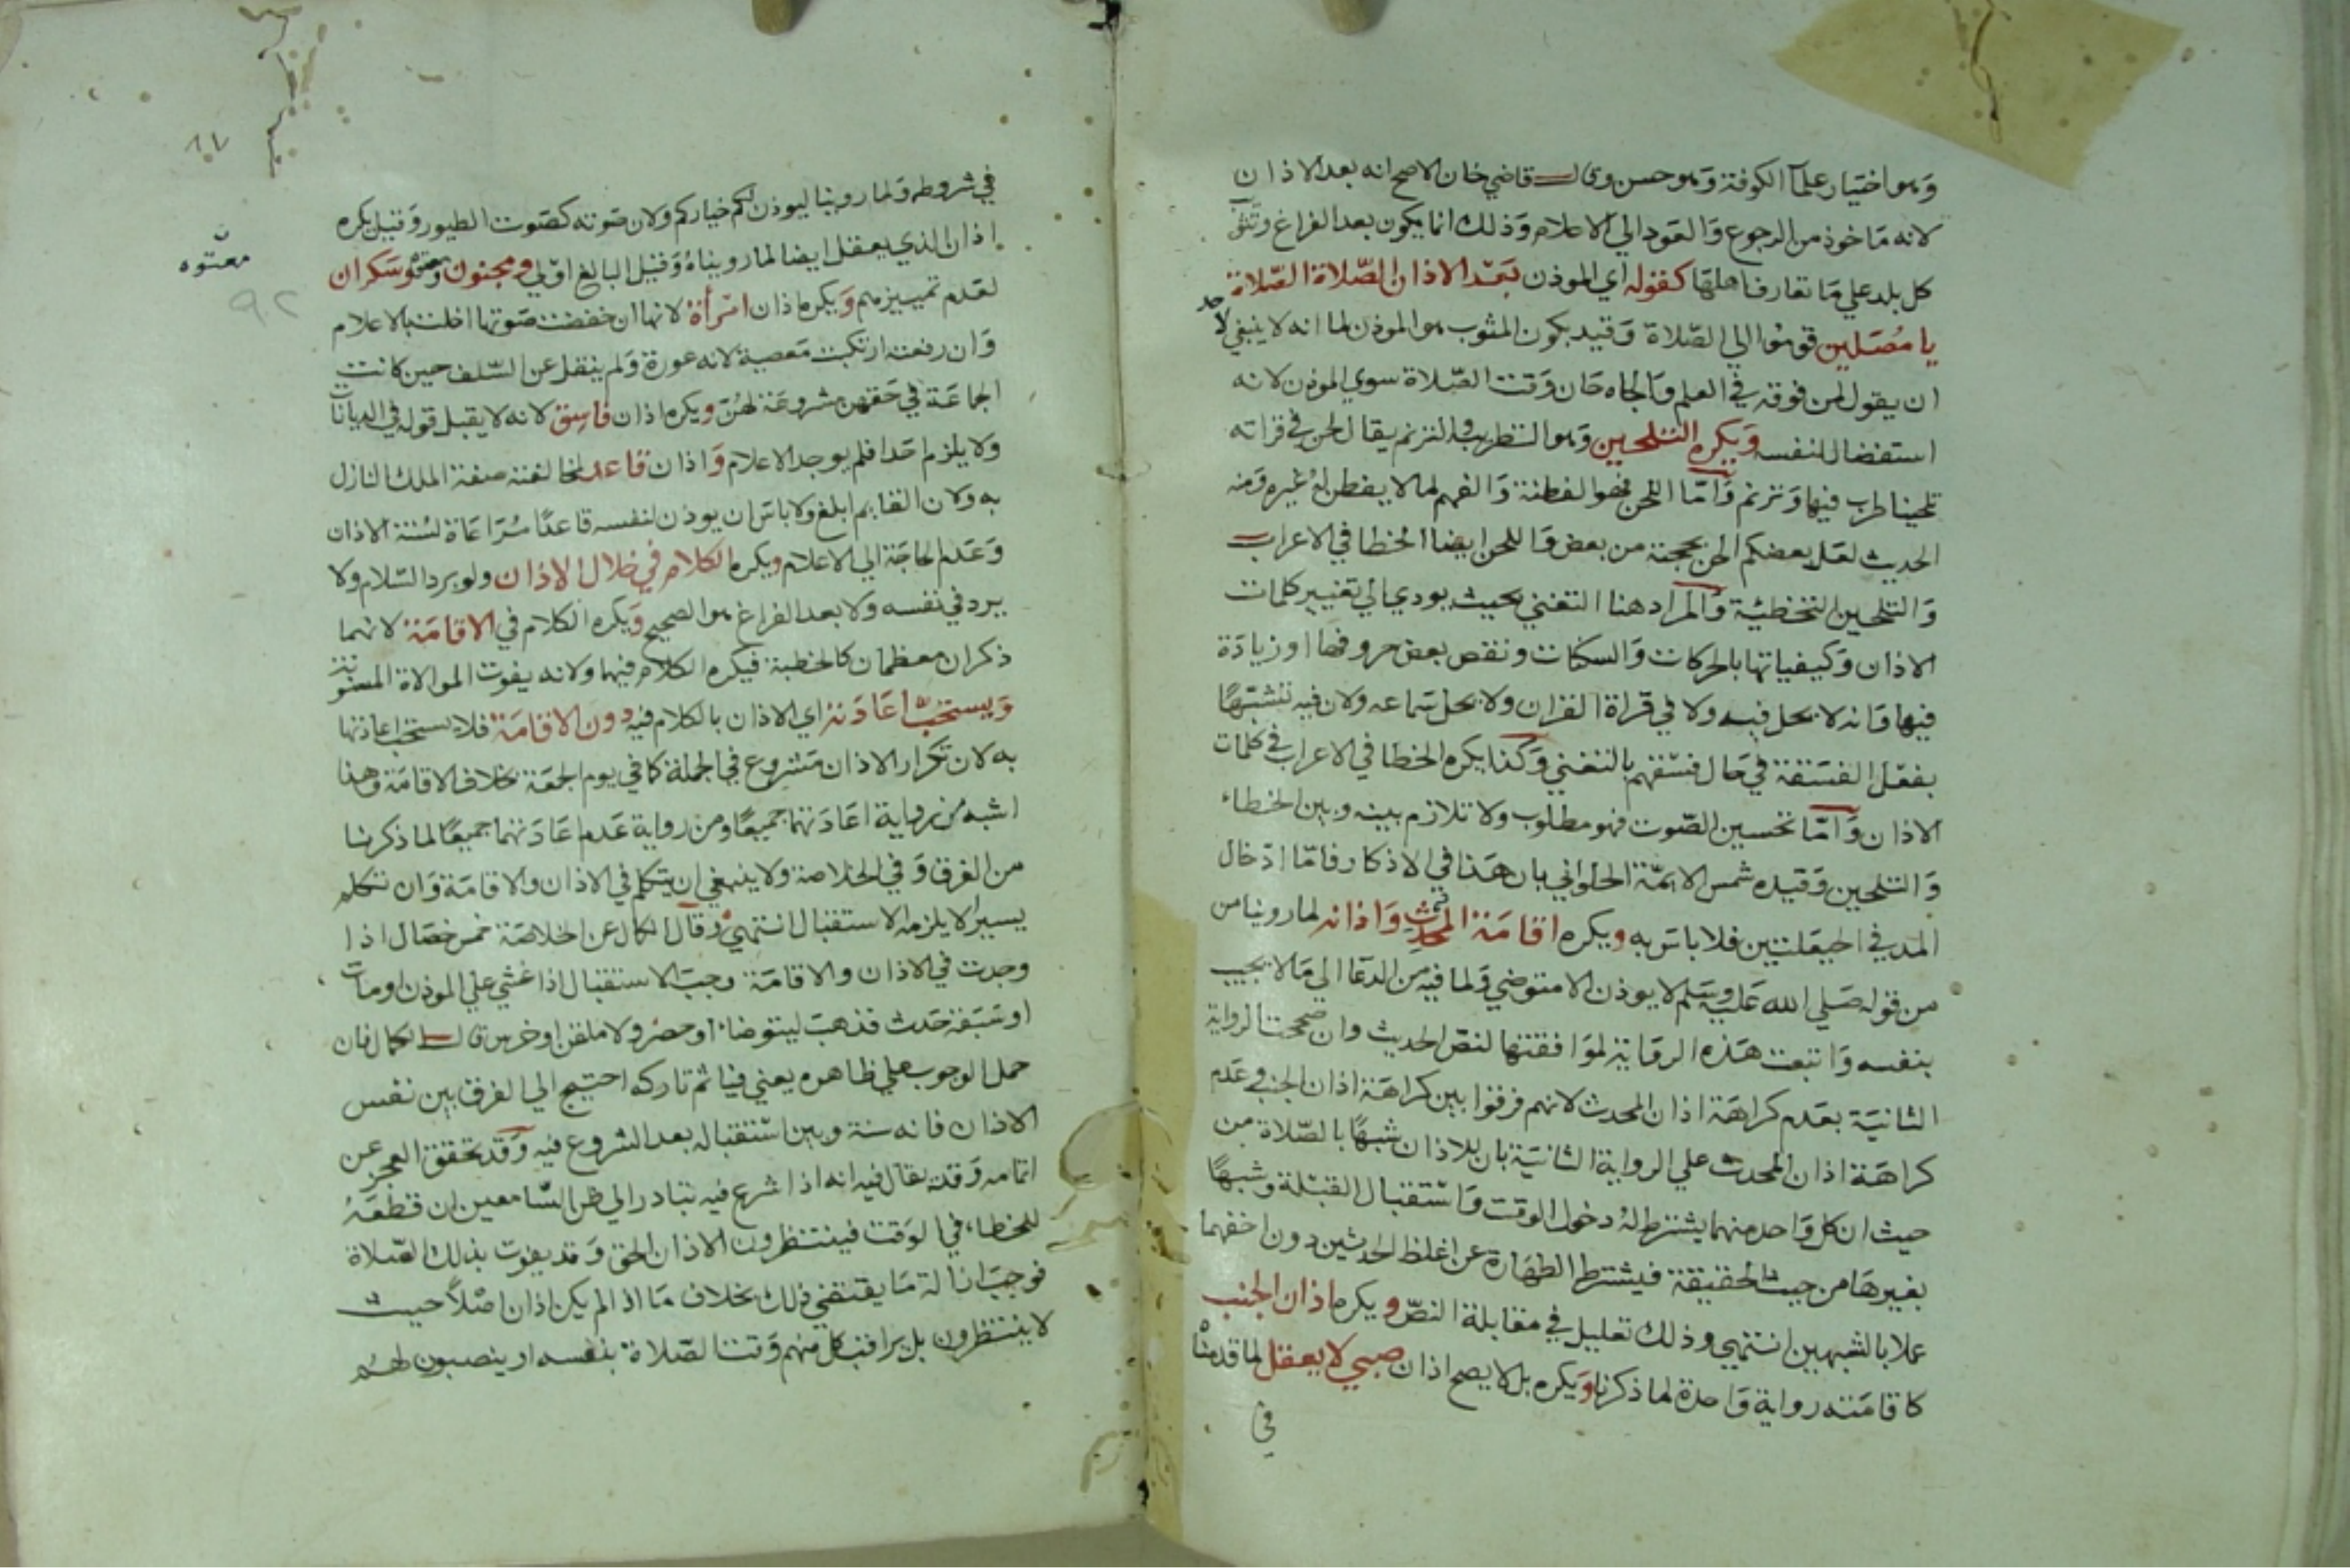 وهو اختيار علمآ الكوفة وهو حسن وقال قاضي خان الاصح انه بعد الاذان
لانه ماخوذ من الرجوع والعود الي الاعلام وذلك انما يكون بعد الفراغ وتثويب
كل بلد علي ما تعارفه اهلها كقوله اي الموذن بعد الاذان الصلاة الصلاة
يا مصلين قوموا الي الصلاة وقيد بكون المثوب هو الموذن لما انه لا ينبغي لاحد
ان يقول لمن فوقه في العلم والجاه حان وقت الصلاة سوي الموذن لانه
استفضال لنفسه ويكره التلحين وهو التطريب والترنم يقال لحن في قراته
تلحينا طرب فيها وترنم واما اللحن فهو الفطنة والفهم لما لا يفطن له غيره ومنه
الحديث لعل بعضكم الحن بحجته من بعض واللحن ايضا الخطا في الاعراب
والتلحين التخطئة والمراد هنا التغني بحيث يودي الي تغيير كلمات
الاذان وكيفياتها بالحركات والسكنات ونقص بعض حروفها او زيادة
فيها فانه لا يحل فيه ولا في قراة القران ولا يحل سماعه ولان فيه تشبها
بفعل الفسقة في حال فسقهم بالتغني وكذا يكره الخطا في الاعراب في كلمات
الاذان واما تحسين الصوت فهو مطلوب ولا تلازم بينه وبين الخطاء
والتلحين وقيده شمس الايمة الحلواني بان هذا في الاذكار فاما ادخال
المد في الحيعلتين فلا باس به ويكره اقامة المحدث واذانه لما روينا من
من قوله صلي الله عليه وسلم لا يوذن الا متوضي ولما فيه من الدعا الي ما لا يجيب
بنفسه واتبعت هذه الرواية لموافقتها لنص الحديث وان صححت الرواية
الثانية بعدم كراهة اذان المحدث لانهم فرقوا بين كراهة اذان الجنب وعدم
كراهة اذان المحدث علي الرواية الثانية بان للاذان شبها بالصلاة من
حيث ان كل واحد منهما يشترط له دخول الوقت واستقبال القبلة وشبها
بغيرها من حيث الحقيقة فيشترط الطهارة عن اغلظ الحدثين دون اخفهما
عملا بالشبهين انتهي وذلك تعليل في مقابلة النص ويكره اذان الجنب
كاقامته رواية واحدة لما ذكرنا ويكره بل لا يصح اذان صبي لا يعقل لما قدمنا
في
٨٧
في شروطه ولما روينا ليوذن لكم خياركم ولان صوته كصوت الطيور وقيل يكره
اذان الذي يعقل ايضا لما رويناه وقيل البالغ اولي ومجنون ومعتوه وسكران
معتوه
٩٢
لعدم تمييزهم ويكره اذان امرأة لانها ان خفضت صوتها اخلت بالاعلام
وان رفعته ارتكبت معصية لانه عورة ولم ينقل عن السلف حين كانت
الجماعة في حقهن مشروعة لهن ويكره اذان فاسق لانه لا يقبل قوله في الديانات
ولا يلزم احدا فلم يوجد الاعلام واذان قاعد لمخالفته صفة الملك النازل
به ولان القايم ابلغ ولا باس ان يوذن لنفسه قاعدا مراعاة لسنة الاذان
وعدم الحاجة الي الاعلام ويكره الكلام في خلال الاذان ولو برد السلام ولا
يرد في نفسه ولا بعد الفراغ هو الصحيح ويكره الكلام في الاقامة لانهما
ذكران معظمان كالخطبة فيكره الكلام فيهما ولانه يفوت الموالاة المسنونة
ويستحب اعادته اي الاذان بالكلام فيه دون الاقامة فلا يستحب اعادتها
به لان تكرار الاذان مشروع في الجملة كما في يوم الجمعة بخلاف الاقامة وهذا
اشبه من رواية اعادتهما جميعا ومن رواية عدم اعادتهما جميعا لما ذكرنا
من الفرق وفي الخلاصة ولا ينبغي ان يتكلم في الاذان والاقامة وان تكلم
يسيرا لا يلزمه الاستقبال انتهي وقال الكمال عن الخلاصة خمس خصال اذا
وجدت في الاذان والاقامة وجب الاستقبال اذا غشي علي الموذن او مات
او سبقه حدث فذهب ليتوضاء او حصر ولا ملقن او خرس قال الكمال فان
حمل الوجوب علي ظاهره يعني فياثم تاركه احتيج الي الفرق بين نفس
الاذان فانه سنة وبين استقباله بعد الشروع فيه وقد تحقق العجز عن
اتمامه وقد يقال فيه انه اذا شرع فيه تبادر الي ظن السامعين ان قطعه
للخطاء في الوقت فينتظرون الاذان الحق وقد يفوت بذلك الصلاة
فوجب ازالة ما يقتضي ذلك بخلاف ما اذا لم يكن اذان اصلا حيث
لا ينتظرون بل يراقب كل منهم وقت الصلاة بنفسه او ينصبون لهم